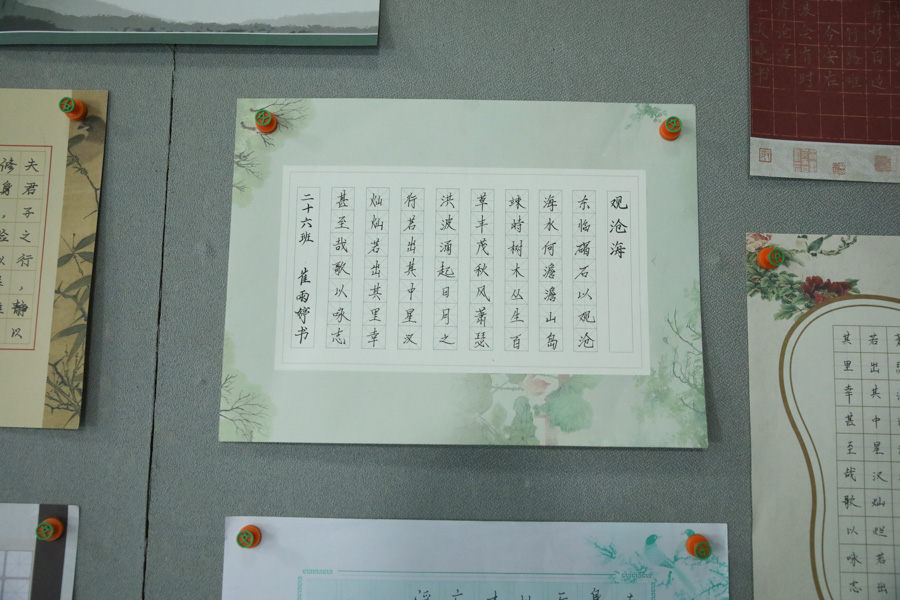 观沧海
东临碣石以观沧
海水何澹澹山岛
竦峙树木丛生百
草丰茂秋风萧瑟
洪波涌起日月之
行若出其中星汉
灿灿若出其里幸
甚至哉歌以咏志
二十六班 崔雨婷书
夫君子之行，静以
修身，
若出其中星汉灿烂若出
其里幸甚至哉歌以咏志